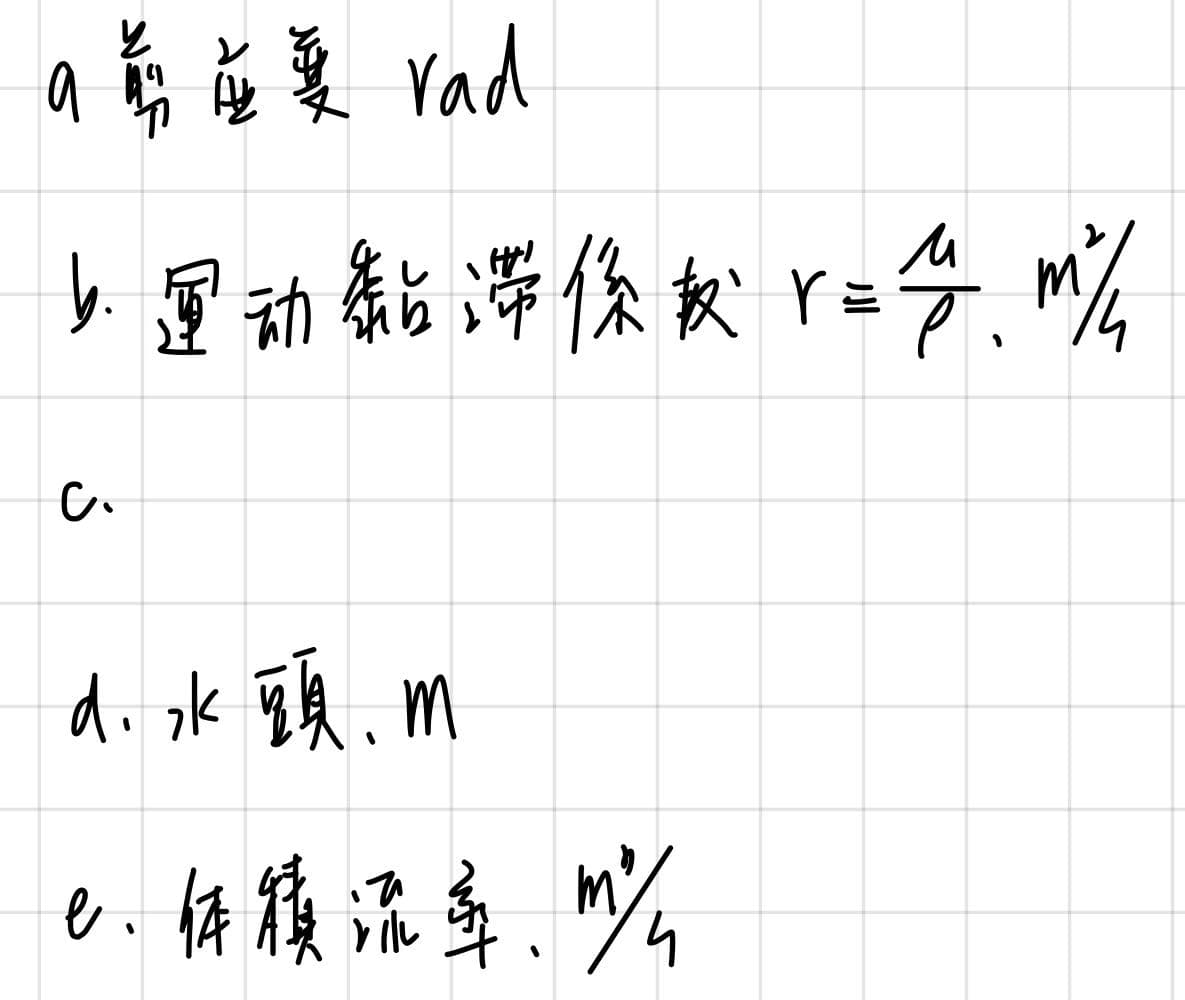 a 剪应变 rad
b. 運动黏滯係数 r ≡ μ/ρ、m²/s
c.
d. 水頭、m
e. 体積流率、m³/s